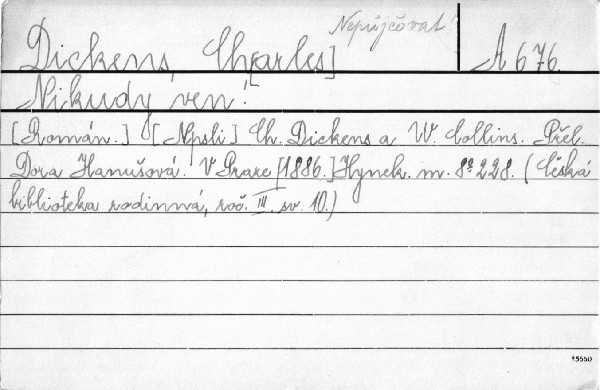 Nepůjčovat!
Dickens, Ch[arles] A 676
Nikudy ven!
[Román.] [Npsli] Ch. Dickens a W. Collins. Přel.
Dora Hanušová. V Praze [1886.] Hynek. m. 8° 228. (Česká
biblioteka rodinná, roč. III. sv. 10.)